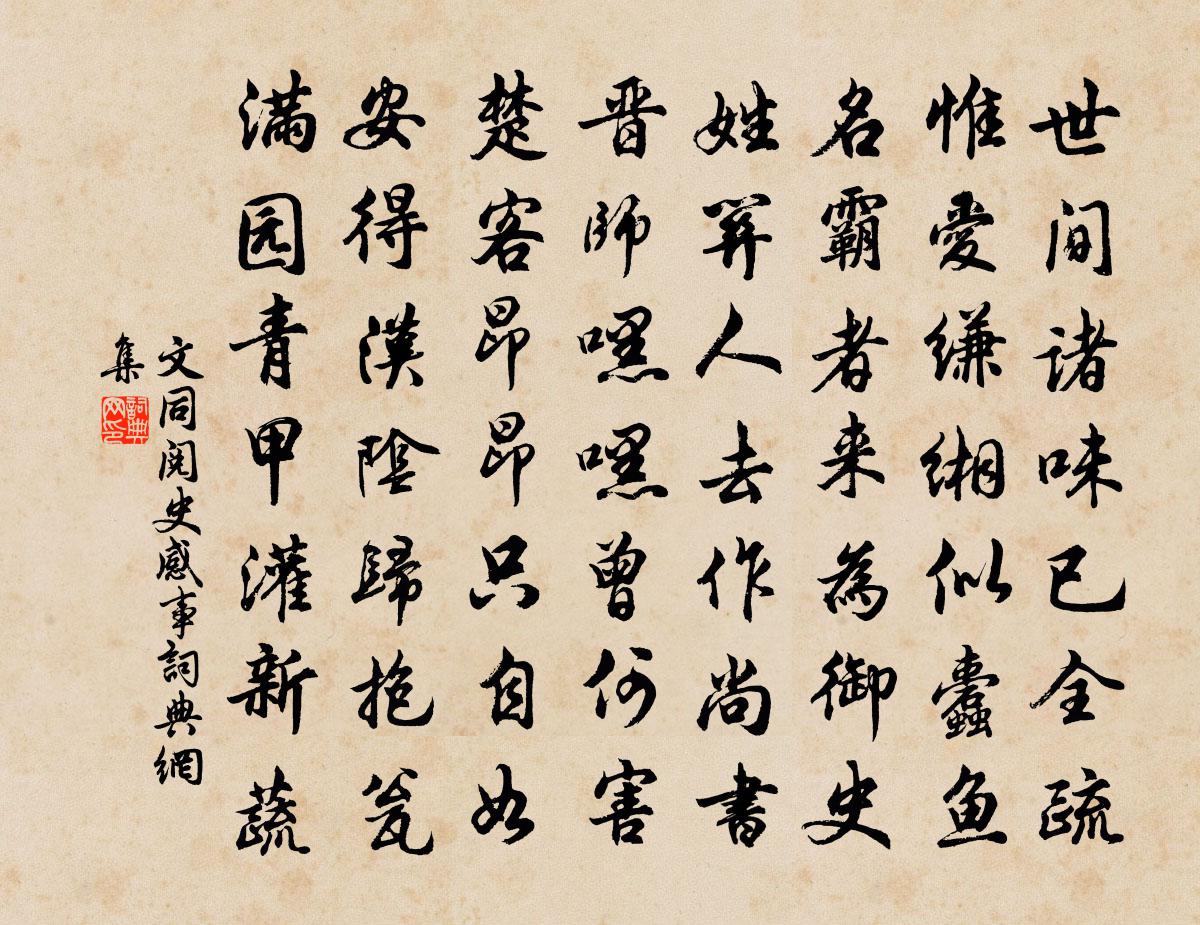 世间诸味已全疏
惟爱缣缃似蠹鱼
名霸者来为御史
姓羿人去作尚书
晋师嘿嘿曾何害
楚客昂昂只自如
安得汉阴归抱瓮
满园青甲灌新蔬
文同阅史感事词典网
集
词典网印